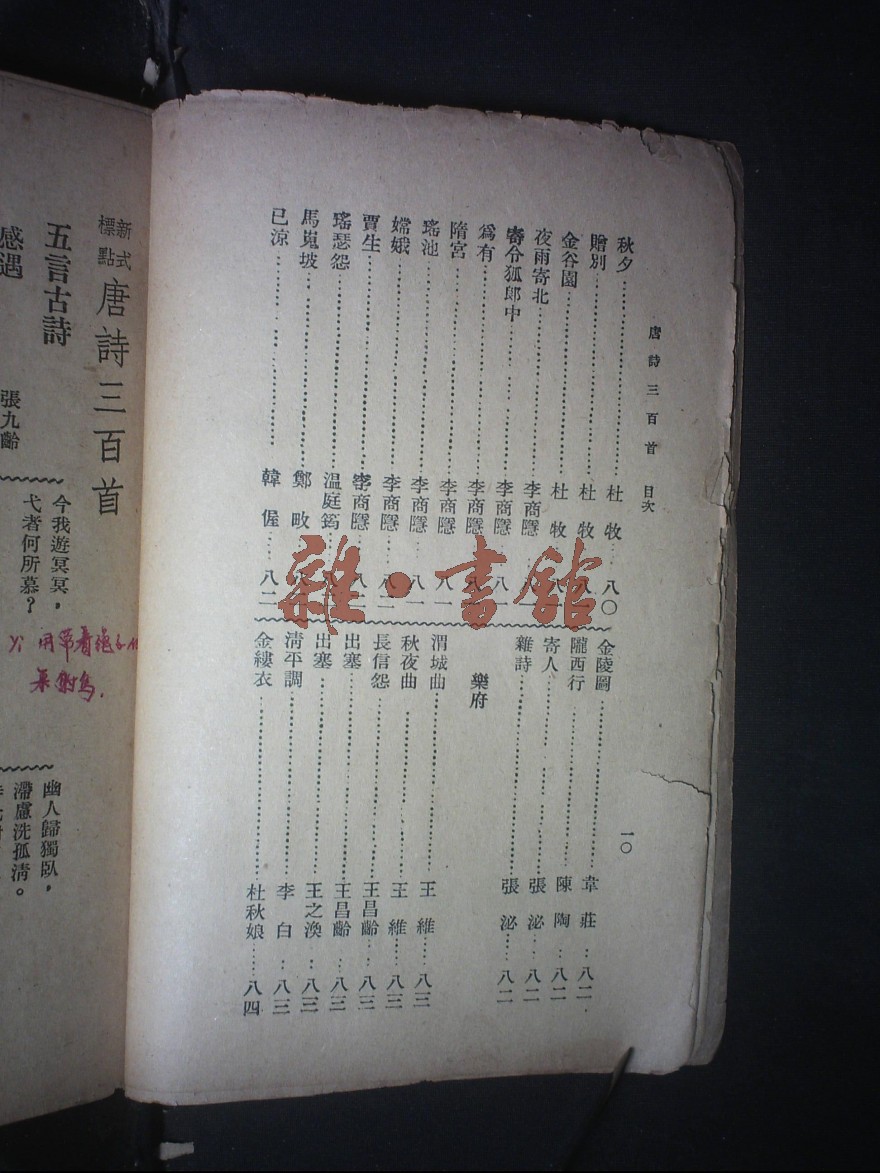 唐詩三百首 目次 一〇
秋夕 杜牧 八〇
贈別 杜牧 八
金谷園 杜牧 八
夜雨寄北 李商隱
寄令狐郎中 李商隱 八
爲有 李商隱
隋宮 李商隱 八一
瑤池 李商隱 八一
嫦娥 李商隱 八二
賈生 李商隱 八
瑤瑟怨 温庭筠
馬嵬坡 鄭畋
已涼 韓偓 八二
金陵圖 韋莊 八二
隴西行 陳陶 八二
寄人 張泌 八二
雜詩 張泌 八二
樂府
渭城曲 王維 八三
秋夜曲 王維 八三
長信怨 王昌齡 八三
出塞 王昌齡 八三
出塞 王之渙 八三
清平調 李白 八三
金縷衣 杜秋娘 八四
雜·書館
新式標點 唐詩三百首
五言古詩
感遇 張九齡
今我遊冥冥，
弋者何所慕？
幽人歸獨臥，
滯慮洗孤清。